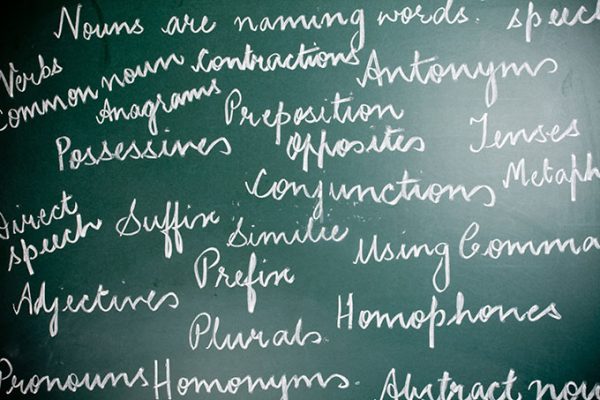 Nouns are naming words. speech
Verbs
Common noun Contractions Antonyms
Anagrams Preposition
Possessives Opposites Tenses
Conjunctions Metaph
Direct speech Suffix Similie Using Comma
Prefix
Adjectives Homophones
Plurals
Pronouns Homonyms. Abstract nou